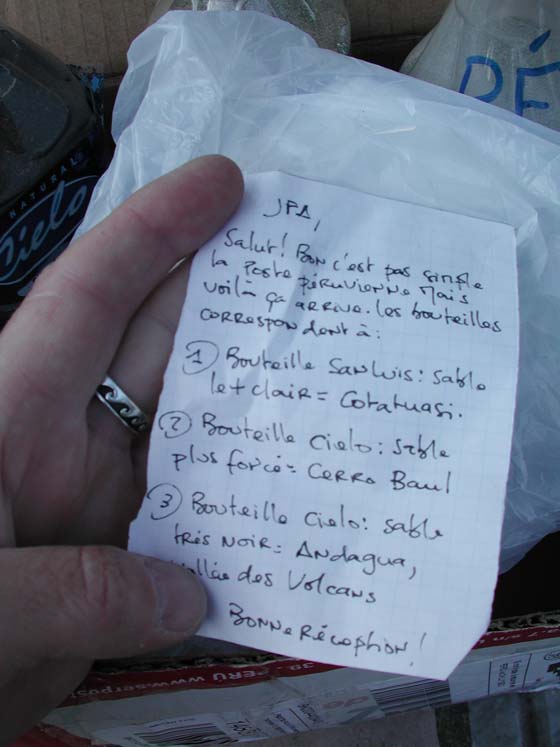 NATURAL
Cielo
PÉ
JPA,
Salut! Bon c'est pas simple
la Poste péruvienne Mais
voilà ça arrive. Les bouteilles
correspondent à:
① Bouteille San Luis: sable
le + clair = Cotahuasi.
② Bouteille Cielo: sable
plus foncé = Cerro Baul
③ Bouteille Cielo: sable
très noir = Andagua,
Vallée des Volcans
Bonne Réception!
PERU www.serpos